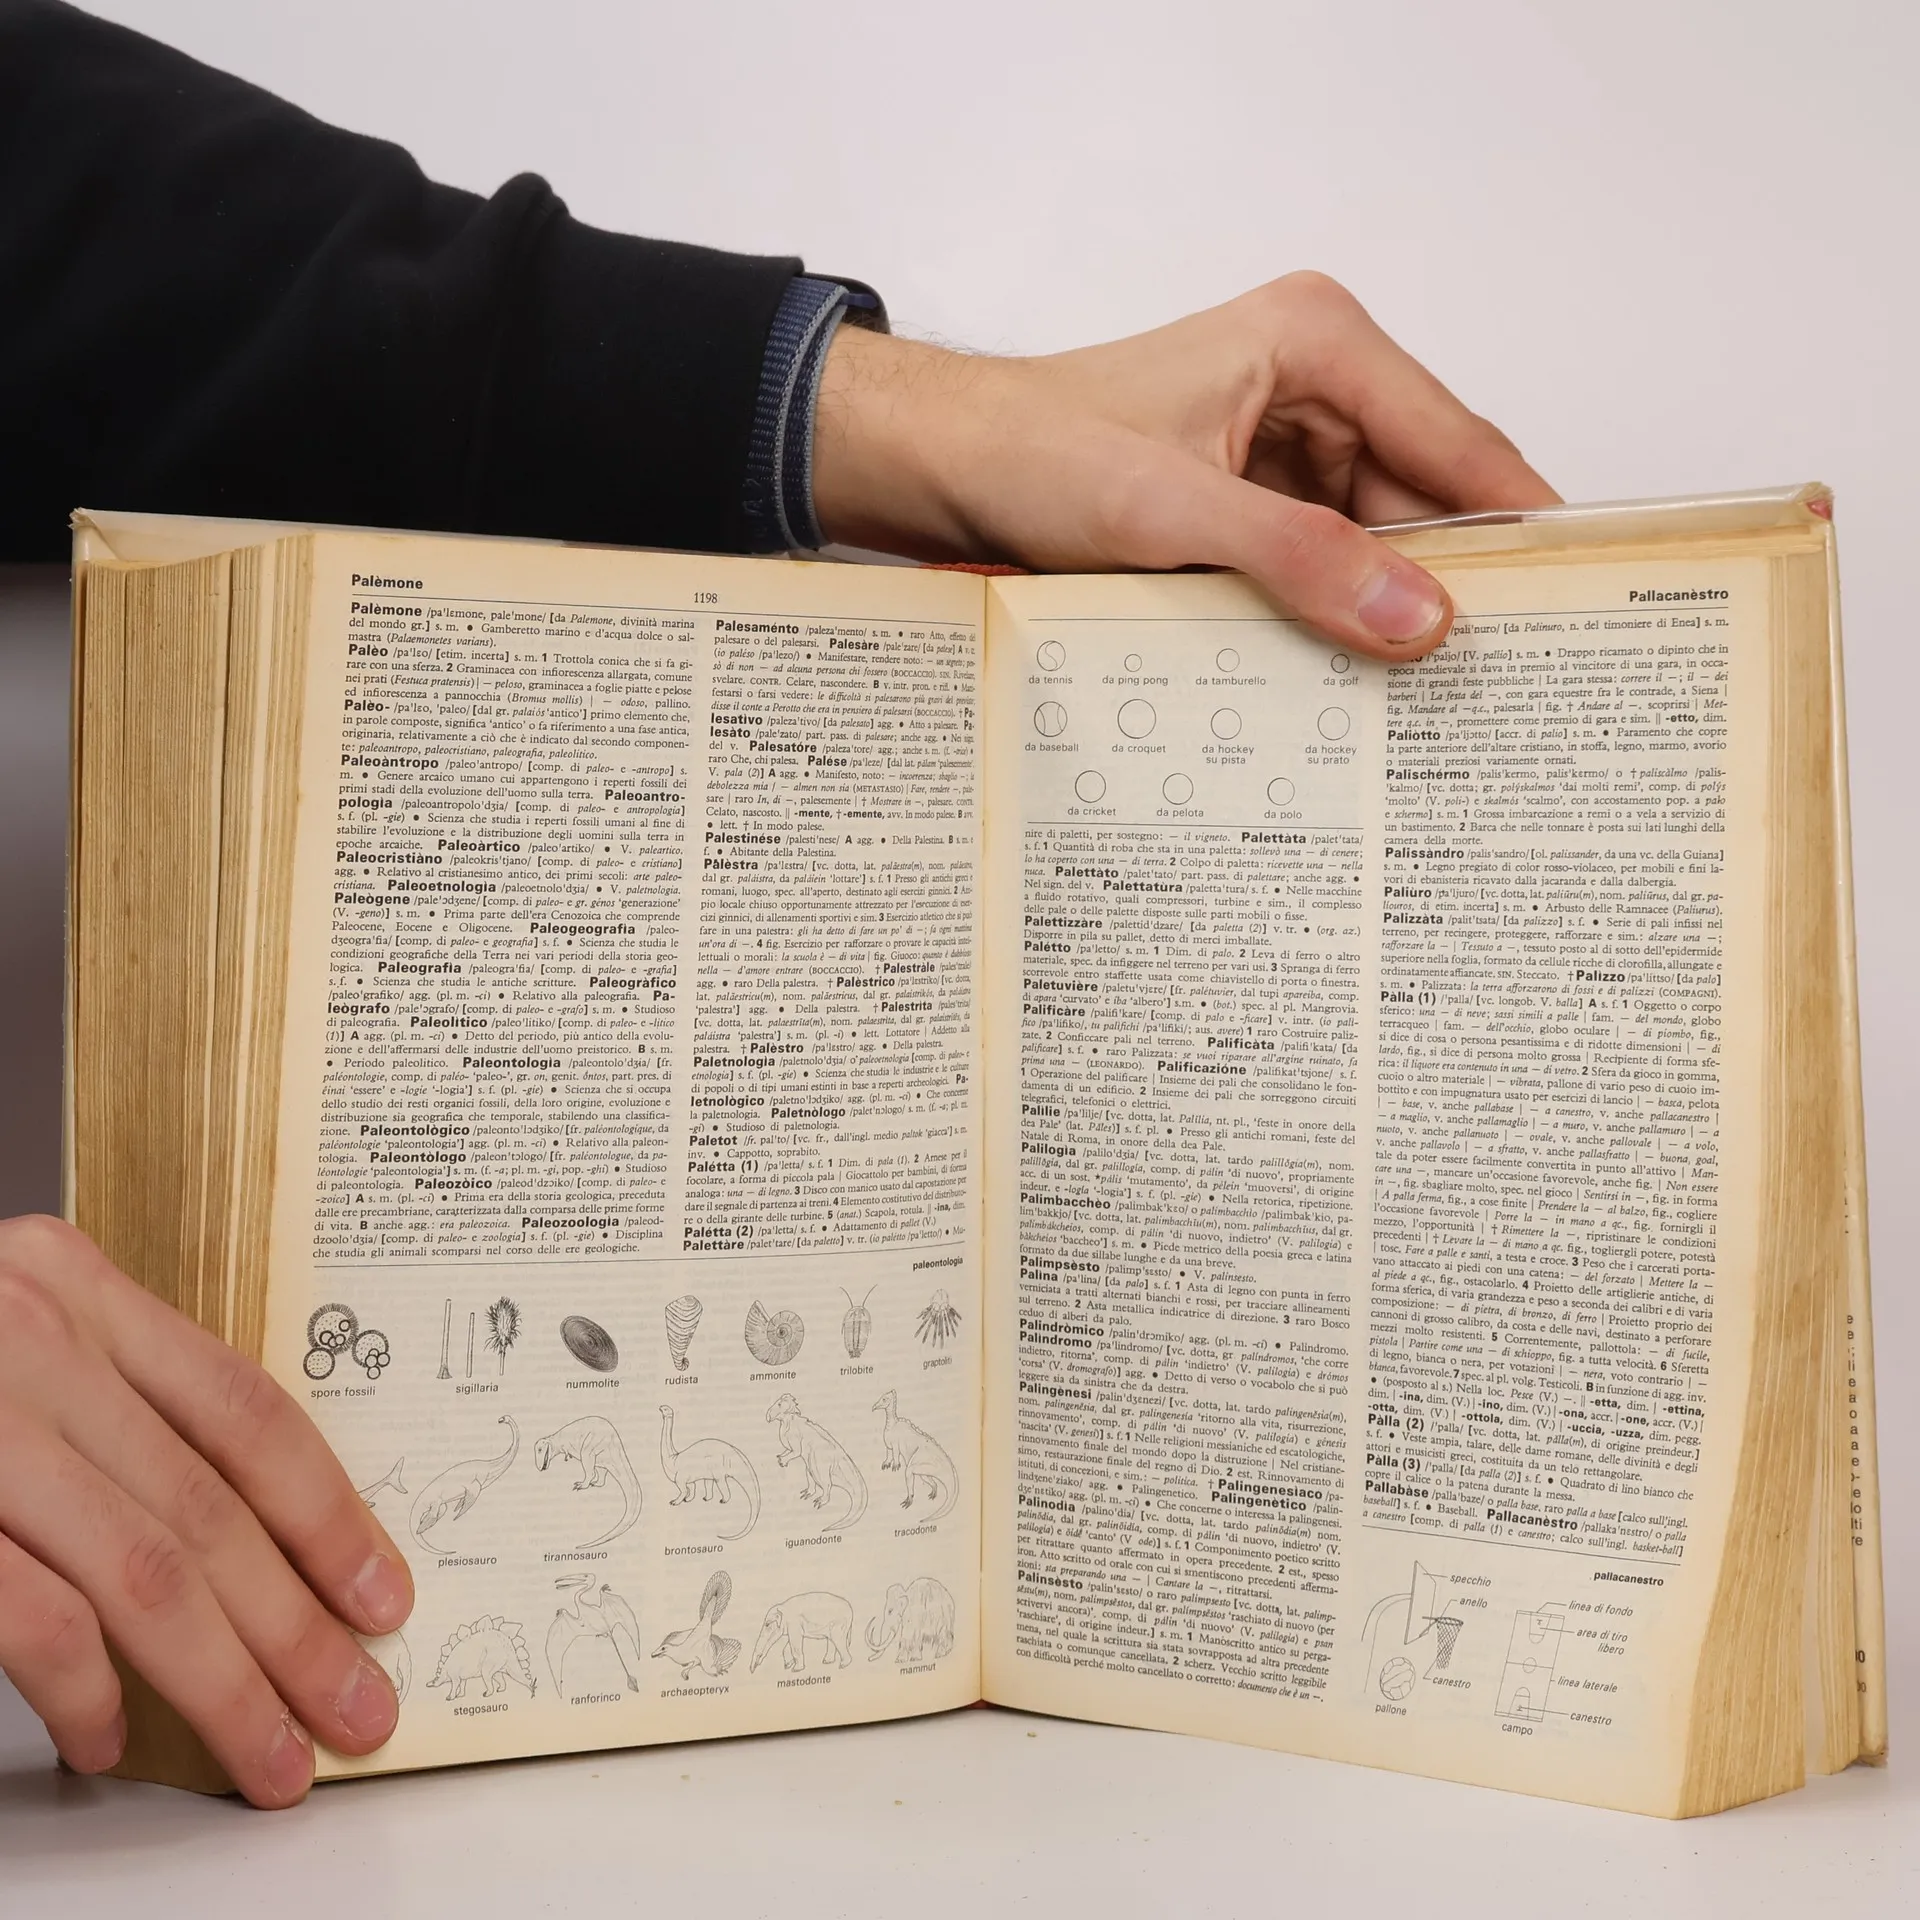 Palèmone
1198
Palèmone /pa'lɛmone, pale'mone/ [da Palemone, divinità marina
del mondo gr.] s. m. ● Gamberetto marino e d'acqua dolce o sal-
mastra (Palaemonetes varians).
Palèo /pa'lɛo/ [etim. incerta] s. m. 1 Trottola conica che si fa gi-
rare con una sferza. 2 Graminacea con infiorescenza allargata, comune
nei prati (Festuca pratensis) | — peloso, graminacea a foglie piatte e pelose
ed infiorescenza a pannocchia (Bromus mollis) | — odoso, pallino.
Palèo- /pa'lɛo, 'paleo/ [dal gr. palaiós 'antico'] primo elemento che,
in parole composte, significa 'antico' o fa riferimento a una fase antica,
originaria, relativamente a ciò che è indicato dal secondo componen-
te: paleoantropo, paleocristiano, paleografia, paleolitico.
Paleoàntropo /paleo'antropo/ [comp. di paleo- e -antropo] s.
m. ● Genere arcaico umano cui appartengono i reperti fossili dei
primi stadi della evoluzione dell'uomo sulla terra. Paleoantro-
pologìa /paleoantropolo'dʒia/ [comp. di paleo- e antropologia]
s. f. (pl. -gie) ● Scienza che studia i reperti fossili umani al fine di
stabilire l'evoluzione e la distribuzione degli uomini sulla terra in
epoche arcaiche. Paleoàrtico /paleo'artiko/ ● V. paleartico.
Paleocristiàno /paleokris'tjano/ [comp. di paleo- e cristiano]
agg. ● Relativo al cristianesimo antico, dei primi secoli: arte paleo-
cristiana. Paleoetnologìa /paleoetnolo'dʒia/ ● V. paletnologia.
Paleògene /pale'ɔdʒene/ [comp. di paleo- e gr. génos 'generazione'
(V. -geno)] s. m. ● Prima parte dell'era Cenozoica che comprende
Paleocene, Eocene e Oligocene. Paleogeografìa /paleo-
dʒeogra'fia/ [comp. di paleo- e geografia] s. f. ● Scienza che studia le
condizioni geografiche della Terra nei vari periodi della storia geo-
logica. Paleografìa /paleogra'fia/ [comp. di paleo- e -grafia]
s. f. ● Scienza che studia le antiche scritture. Paleogràfico
/paleo'grafiko/ agg. (pl. m. -ci) ● Relativo alla paleografia. Pa-
leògrafo /pale'ɔgrafo/ [comp. di paleo- e -grafo] s. m. ● Studioso
di paleografia. Paleolìtico /paleo'litiko/ [comp. di paleo- e -litico
(1)] A agg. (pl. m. -ci) ● Detto del periodo, più antico della evolu-
zione e dell'affermarsi delle industrie dell'uomo preistorico. B s. m.
● Periodo paleolitico. Paleontologìa /paleontolo'dʒia/ [fr.
paléontologie, comp. di paléo- 'paleo-', gr. on, genit. óntos, part. pres. di
êinai 'essere' e -logie '-logia'] s. f. (pl. -gie) ● Scienza che si occupa
dello studio dei resti organici fossili, della loro origine, evoluzione e
distribuzione sia geografica che temporale, stabilendo una classifica-
zione. Paleontològico /paleonto'lɔdʒiko/ [fr. paléontologique, da
paléontologie 'paleontologia'] agg. (pl. m. -ci) ● Relativo alla paleon-
tologia. Paleontòlogo /paleon'tɔlogo/ [fr. paléontologue, da pa-
léontologie 'paleontologia'] s. m. (f. -a; pl. m. -gi, pop. -ghi) ● Studioso
di paleontologia. Paleozòico /paleod'dzɔiko/ [comp. di paleo- e
-zoico] A s. m. (pl. -ci) ● Prima era della storia geologica, preceduta
dalle ere precambriane, caratterizzata dalla comparsa delle prime forme
di vita. B anche agg.: era paleozoica. Paleozoologìa /paleod-
dzoolo'dʒia/ [comp. di paleo- e zoologia] s. f. (pl. -gie) ● Disciplina
che studia gli animali scomparsi nel corso delle ere geologiche.
Palesaménto /paleza'mento/ s. m. ● raro Atto, effetto del
palesare o del palesarsi. Palesàre /pale'zare/ [da palese] A v. tr.
(io paléso /pa'lezo/) ● Manifestare, rendere noto: — un segreto;
sò di non — ad alcuna persona chi fossero (BOCCACCIO). SIN. Rivelare,
svelare. CONTR. Celare, nascondere. B v. intr. pron. e rifl. ● Mani-
festarsi o farsi vedere: le difficoltà si palesarono più gravi del previsto;
disse il conte a Perotto che era in pensiero di palesarsi (BOCCACCIO). † Pa-
lesatìvo /paleza'tivo/ [da palesato] agg. ● Atto a palesare. Pa-
lesàto /pale'zato/ part. pass. di palesare; anche agg. ● Nei sign.
del v. Palesatóre /paleza'tore/ agg.; anche s. m. (f. -trice) ●
raro Che, chi palesa. Palése /pa'leze/ [dal lat. pălam 'palesemente'.
V. pala (2)] A agg. ● Manifesto, noto: — incertezza; sbaglio —; la
debolezza mia / — almen non sia (METASTASIO) | Fare, rendere —, pale-
sare | raro In, di —, palesemente | † Mostrare in —, palesare. CONTR.
Celato, nascosto. || -mente, †-emente, avv. In modo palese. B avv.
● lett. † In modo palese.
Palestinése /palesti'nese/ A agg. ● Della Palestina. B s. m. e
f. ● Abitante della Palestina.
Palèstra /pa'lɛstra/ [vc. dotta, lat. palăestra(m), nom. palăestra,
dal gr. paláistra, da paláiein 'lottare'] s. f. 1 Presso gli antichi greci e
romani, luogo, spec. all'aperto, destinato agli esercizi ginnici. 2 Am-
pio locale chiuso opportunamente attrezzato per l'esecuzione di eser-
cizi ginnici, di allenamenti sportivi e sim. 3 Esercizio atletico che si può
fare in una palestra: gli ha detto di fare un po' di —; fa ogni mattina
un'ora di —. 4 fig. Esercizio per rafforzare o provare le capacità intel-
lettuali o morali: la scuola è — di vita | fig. Giuoco: quanto è dubbioso
nella — d'amore entrare (BOCCACCIO). † Palestràle /pales'trale/
agg. ● raro Della palestra. † Palèstrico /pa'lɛstriko/ [vc. dotta,
lat. palăestricu(m), nom. palăestricus, dal gr. palaistrikós, da paláistra
'palestra'] agg. ● Della palestra. † Palestrìta /pales'trita/
[vc. dotta, lat. palaestrīta(m), nom. palaestrita, dal gr. palaistrítēs, da
paláistra 'palestra'] s. m. (pl. -i) ● lett. Lottatore | Addetto alla
palestra. † Palèstro /pa'lɛstro/ agg. ● Della palestra.
Paletnologìa /paletnolo'dʒia/ o paleoetnologia [comp. di paleo- e
etnologia] s. f. (pl. -gie) ● Scienza che studia le industrie e le culture
di popoli o di tipi umani estinti in base a reperti archeologici. Pa-
letnològico /paletno'lɔdʒiko/ agg. (pl. m. -ci) ● Che concerne
la paletnologia. Paletnòlogo /palet'nɔlogo/ s. m. (f. -a; pl. m.
-gi) ● Studioso di paletnologia.
Paletot /fr. pal'to/ [vc. fr., dall'ingl. medio paltok 'giacca'] s. m.
inv. ● Cappotto, soprabito.
Palétta (1) /pa'letta/ s. f. 1 Dim. di pala (1). 2 Arnese per il
focolare, a forma di piccola pala | Giocattolo per bambini, di forma
analoga: una — di legno. 3 Disco con manico usato dal capostazione per
dare il segnale di partenza ai treni. 4 Elemento costitutivo del distributo-
re o della girante delle turbine. 5 (anat.) Scapola, rotula. || -ina, dim.
Palétta (2) /pa'letta/ s. f. ● Adattamento di pallet (V.)
Palettàre /palet'tare/ [da paletto] v. tr. (io palétto /pa'letto/) ● Mu-
paleontologia
spore fossili
sigillaria
nummolite
rudista
ammonite
trilobite
graptoliti
plesiosauro
tirannosauro
brontosauro
iguanodonte
tracodonte
stegosauro
ranforinco
archaeopteryx
mastodonte
mammut
Pallacanèstro
da tennis
da ping pong
da tamburello
da golf
da baseball
da croquet
da hockey
su pista
da hockey
su prato
da cricket
da pelota
da polo
nire di paletti, per sostegno: — il vigneto. Palettàta /palet'tata/
s. f. 1 Quantità di roba che sta in una paletta: sollevò una — di cenere;
lo ha coperto con una — di terra. 2 Colpo di paletta: ricevette una — nella
nuca. Palettàto /palet'tato/ part. pass. di palettare; anche agg. ●
Nel sign. del v. Palettatùra /paletta'tura/ s. f. ● Nelle macchine
a fluido rotativo, quali compressori, turbine e sim., il complesso
delle pale o delle palette disposte sulle parti mobili o fisse.
Palettizzàre /palettid'dzare/ [da paletta (2)] v. tr. ● (org. az.)
Disporre in pila su pallet, detto di merci imballate.
Palétto /pa'letto/ s. m. 1 Dim. di palo. 2 Leva di ferro o altro
materiale, spec. da infiggere nel terreno per vari usi. 3 Spranga di ferro
scorrevole entro staffette usata come chiavistello di porta o finestra.
Paletuvière /paletu'vjɛre/ [fr. palétuvier, dal tupi apareiba, comp.
di apara 'curvato' e iba 'albero'] s.m. ● (bot.) spec. al pl. Mangrovia.
Palificàre /palifi'kare/ [comp. di palo e -ficare] v. intr. (io pali-
fico /pa'lifiko/, tu palifichi /pa'lifiki/; aus. avere) 1 raro Costruire paliz-
zate. 2 Conficcare pali nel terreno. Palificàta /palifi'kata/ [da
palificare] s. f. ● raro Palizzata: se vuoi riparare all'argine ruinato, fa
prima una — (LEONARDO). Palificazióne /palifikat'tsjone/ s. f.
1 Operazione del palificare | Insieme dei pali che consolidano le fon-
damenta di un edificio. 2 Insieme dei pali che sorreggono circuiti
telegrafici, telefonici o elettrici.
Palìlie /pa'lilje/ [vc. dotta, lat. Palília, nt. pl., 'feste in onore della
dea Pale' (lat. Páles)] s. f. pl. ● Presso gli antichi romani, feste del
Natale di Roma, in onore della dea Pale.
Palilogìa /palilo'dʒia/ [vc. dotta, lat. tardo palillŏgia(m), nom.
palillŏgia, dal gr. palillogía, comp. di pálin 'di nuovo', propriamente
acc. di un sost. *pális 'mutamento', da pélein 'muoversi', di origine
indeur. e -logia '-logia'] s. f. (pl. -gie) ● Nella retorica, ripetizione.
Palimbacchèo /palimbak'kɛo/ o palimbacchio /palimbak'kio, pa-
lim'bakkjo/ [vc. dotta, lat. palimbacchīu(m), nom. palimbacchīus, dal gr.
palimbákcheios, comp. di pálin 'di nuovo, indietro' (V. palilogia) e
bákcheios 'baccheo'] s. m. ● Piede metrico della poesia greca e latina
formato da due sillabe lunghe e da una breve.
Palimpsèsto /palimp'sɛsto/ ● V. palinsesto.
Palina /pa'lina/ [da palo] s. f. 1 Asta di legno con punta in ferro
verniciata a tratti alternati bianchi e rossi, per tracciare allineamenti
sul terreno. 2 Asta metallica indicatrice di direzione. 3 raro Bosco
ceduo di alberi da palo.
Palindròmico /palin'drɔmiko/ agg. (pl. m. -ci) ● Palindromo.
Palìndromo /pa'lindromo/ [vc. dotta, gr. palíndromos, 'che corre
indietro, ritorna', comp. di pálin 'indietro' (V. palilogia) e drómos
'corsa' (V. dromografo)] agg. ● Detto di verso o vocabolo che si può
leggere sia da sinistra che da destra.
Palingènesi /palin'dʒenezi/ [vc. dotta, lat. tardo palingenĕsia(m),
nom. palingenĕsia, dal gr. palingenesía 'ritorno alla vita, risurrezione,
rinnovamento', comp. di pálin 'di nuovo' (V. palilogia) e génesis
'nascita' (V. genesi)] s. f. 1 Nelle religioni messianiche ed escatologiche,
rinnovamento finale del mondo dopo la distruzione | Nel cristiane-
simo, restaurazione finale del regno di Dio. 2 est. Rinnovamento di
istituti, di concezioni, e sim.: — politica. † Palingenesìaco /pa-
lindʒene'ziako/ agg. ● Palingenetico. Palingenètico /palin-
dʒe'nɛtiko/ agg. (pl. m. -ci) ● Che concerne o interessa la palingenesi.
Palinodìa /palino'dia/ [vc. dotta, lat. tardo palinōdia(m) nom.
palinōdia, dal gr. palinōidía, comp. di pálin 'di nuovo, indietro' (V.
palilogia) e ōidḗ 'canto' (V ode)] s. f. 1 Componimento poetico scritto
per ritrattare quanto affermato in opera precedente. 2 est., spesso
iron. Atto scritto od orale con cui si smentiscono precedenti afferma-
zioni: sta preparando una — | Cantare la —, ritrattarsi.
Palinsèsto /palin'sɛsto/ o raro palimpsesto [vc. dotta, lat. palimp-
sēstu(m), nom. palimpsēstos, dal gr. palímpsēstos 'raschiato di nuovo (per
scrivervi ancora)', comp. di pálin 'di nuovo' (V. palilogia) e psan
'raschiare', di origine indeur.] s. m. 1 Manoscritto antico su perga-
mena, nel quale la scrittura sia stata sovrapposta ad altra precedente
raschiata o comunque cancellata. 2 scherz. Vecchio scritto leggibile
con difficoltà perché molto cancellato o corretto: documento che è un —.
/pali'nuro/ [da Palinuro, n. del timoniere di Enea] s. m.
/'paljo/ [V. pallio] s. m. ● Drappo ricamato o dipinto che in
epoca medievale si dava in premio al vincitore di una gara, in occa-
sione di grandi feste pubbliche | La gara stessa: correre il —; il — dei
barberi | La festa del —, con gara equestre fra le contrade, a Siena |
fig. Mandare al —q.c., palesarla | fig. † Andare al —. scoprirsi | Met-
tere q.c. in —, promettere come premio di gara e sim. || -etto, dim.
Paliòtto /pa'ljɔtto/ [accr. di palio] s. m. ● Paramento che copre
la parte anteriore dell'altare cristiano, in stoffa, legno, marmo, avorio
o materiali preziosi variamente ornati.
Palischérmo /palis'kermo, palis'kɛrmo/ o † paliscàlmo /palis-
'kalmo/ [vc. dotta; gr. polýskalmos 'dai molti remi', comp. di polýs
'molto' (V. poli-) e skalmós 'scalmo', con accostamento pop. a palo
e schermo] s. m. 1 Grossa imbarcazione a remi o a vela a servizio di
un bastimento. 2 Barca che nelle tonnare è posta sui lati lunghi della
camera della morte.
Palissàndro /palis'sandro/ [ol. palissander, da una vc. della Guiana]
s. m. ● Legno pregiato di color rosso-violaceo, per mobili e fini la-
vori di ebanisteria ricavato dalla jacaranda e dalla dalbergia.
Paliùro /pa'ljuro/ [vc. dotta, lat. paliūru(m), nom. paliūrus, dal gr. pa-
líouros, di etim. incerta] s. m. ● Arbusto delle Ramnacee (Paliurus).
Palizzàta /palit'tsata/ [da palizzo] s. f. ● Serie di pali infissi nel
terreno, per recingere, proteggere, rafforzare e sim.: alzare una —;
rafforzare la — | Tessuto a —, tessuto posto al di sotto dell'epidermide
superiore nella foglia, formato da cellule ricche di clorofilla, allungate e
ordinatamente affiancate. SIN. Steccato. † Palìzzo /pa'littso/ [da palo]
s. m. ● Palizzata: la terra afforzarono di fossi e di palizzi (COMPAGNI).
Pàlla (1) /'palla/ [vc. longob. V. balla] A s. f. 1 Oggetto o corpo
sferico: una — di neve; sassi simili a palle | fam. — del mondo, globo
terracqueo | fam. — dell'occhio, globo oculare | — di piombo, fig.,
si dice di cosa o persona pesantissima e di ridotte dimensioni | — di
lardo, fig., si dice di persona molto grossa | Recipiente di forma sfe-
rica: il liquore era contenuto in una — di vetro. 2 Sfera da gioco in gomma,
cuoio o altro materiale | — vibrata, pallone di vario peso di cuoio im-
bottito e con impugnatura usato per esercizi di lancio | — basca, pelota
| — base, v. anche pallabase | — a canestro, v. anche pallacanestro |
— a maglio, v. anche pallamaglio | — a muro, v. anche pallamuro | — a
nuoto, v. anche pallanuoto | — ovale, v. anche pallovale | — a volo,
v. anche pallavolo | — a sfratto, v. anche pallasfratto | — buona, goal,
tale da poter essere facilmente convertita in punto all'attivo | Man-
care una —, mancare un'occasione favorevole, anche fig. | Non essere
in —, fig. sbagliare molto, spec. nel gioco | Sentirsi in —, fig. in forma
| A palla ferma, fig., a cose finite | Prendere la — al balzo, fig., cogliere
l'occasione favorevole | Porre la — in mano a qc., fig. fornirgli il
mezzo, l'opportunità | † Rimettere la —, ripristinare le condizioni
precedenti | † Levare la — di mano a qc. fig., togliergli potere, potestà
| tosc. Fare a palle e santi, a testa e croce. 3 Peso che i carcerati porta-
vano attaccato ai piedi con una catena: — del forzato | Mettere la —
al piede a qc., fig., ostacolarlo. 4 Proietto delle artiglierie antiche, di
forma sferica, di varia grandezza e peso a seconda dei calibri e di varia
composizione: — di pietra, di bronzo, di ferro | Proietto proprio dei
cannoni di grosso calibro, da costa e delle navi, destinato a perforare
mezzi molto resistenti. 5 Correntemente, pallottola: — di fucile,
pistola | Partire come una — di schioppo, fig. a tutta velocità. 6 Sferetta
di legno, bianca o nera, per votazioni | — nera, voto contrario | —
bianca, favorevole. 7 spec. al pl. volg. Testicoli. B in funzione di agg. inv.
● (posposto al s.) Nella loc. Pesce (V.) —. || -etta, dim. | -ettina,
dim. | -ina, dim. (V.) | -ino, dim. (V.) | -ona, accr. | -one, accr. (V.) |
-otta, dim. (V.) | -ottola, dim. (V.) | -uccia, -uzza, dim. pegg.
Pàlla (2) /'palla/ [vc. dotta, lat. pălla(m), di origine preindeur.]
s. f. ● Veste ampia, talare, delle dame romane, delle divinità e degli
attori e musicisti greci, costituita da un telo rettangolare.
Pàlla (3) /'palla/ [da palla (2)] s. f. ● Quadrato di lino bianco che
copre il calice o la patena durante la messa.
Pallabàse /palla'baze/ o palla base, raro palla a base [calco sull'ingl.
baseball] s. f. ● Baseball. Pallacanèstro /pallaka'nɛstro/ o palla
a canestro [comp. di palla (1) e canestro; calco sull'ingl. basket-ball]
pallacanestro
specchio
anello
canestro
pallone
linea di fondo
area di tiro
libero
linea laterale
canestro
campo